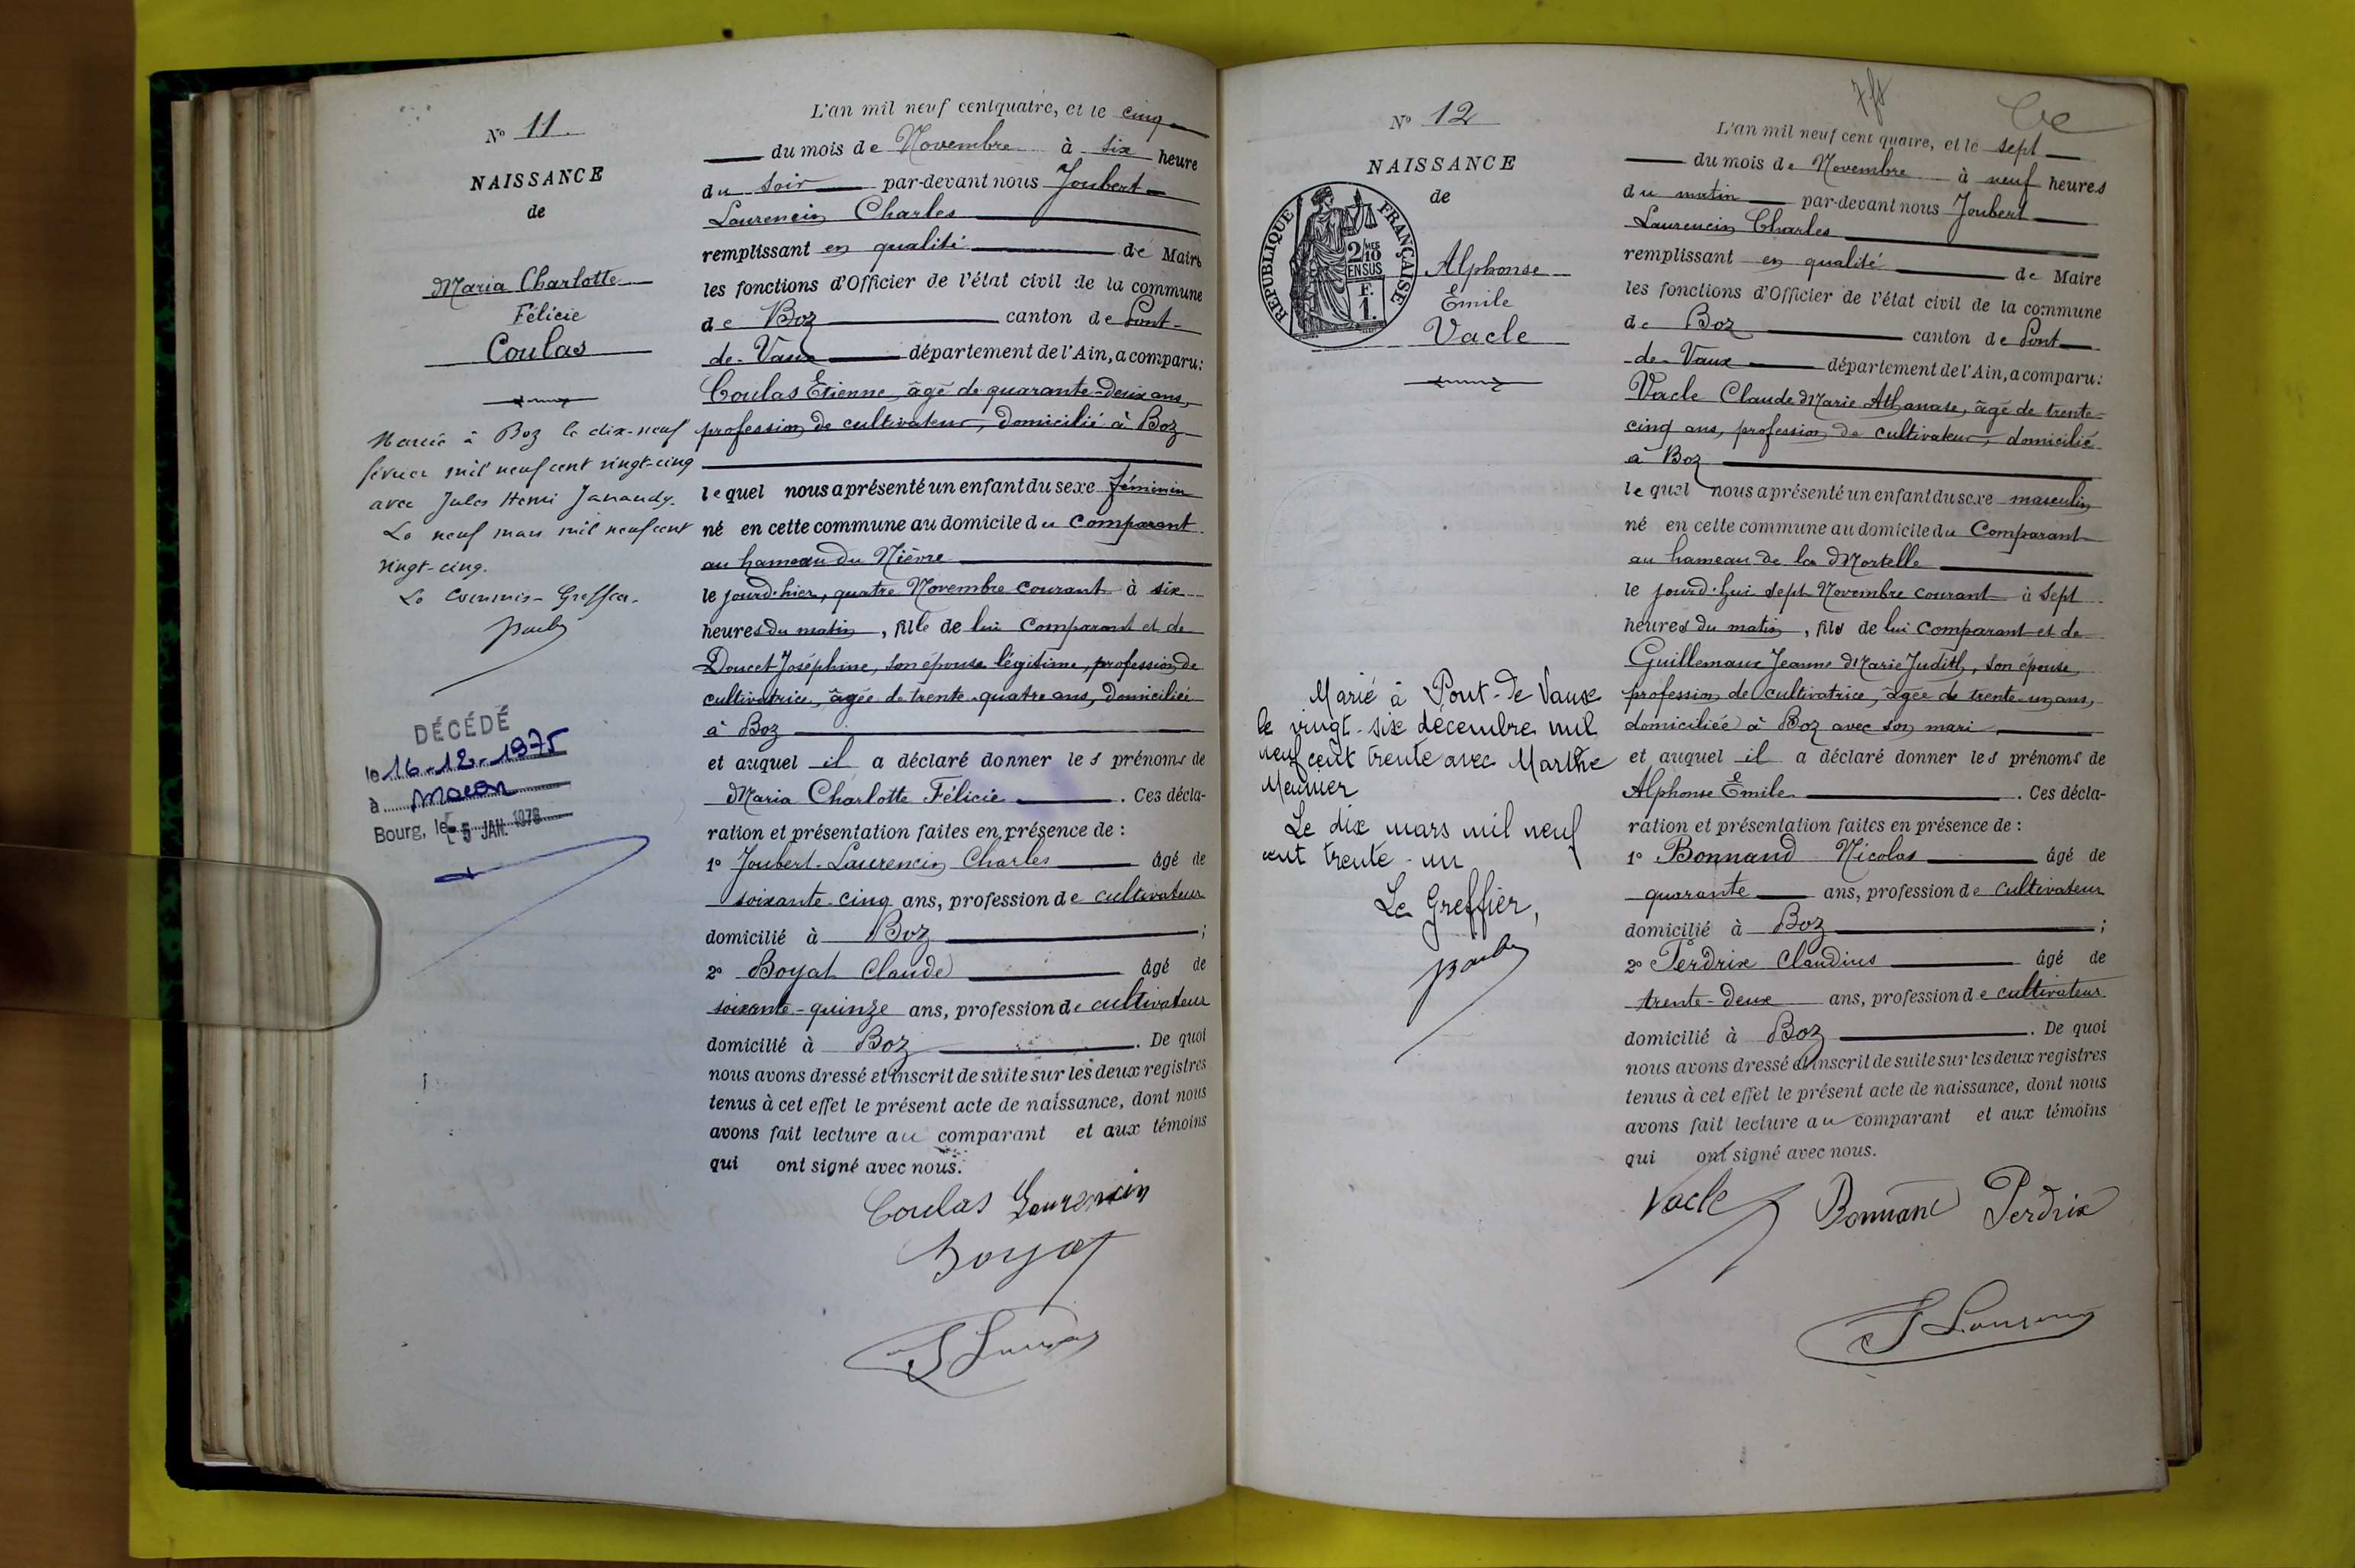 N° 11.
NAISSANCE
de
Maria Charlotte
Félicie
Coulas
Mariée à Boz le dix-neuf
février mil neuf cent vingt-cinq
avec Jules Henri Janaudy.
Le neuf mars mil neuf cent
vingt-cinq.
Le Commis-Greffier.
DÉCÉDÉ
le 16-12-1975
à Macon
Bourg, le - 5 JAN. 1976
L'an mil neuf cent quatre, et le cinq
du mois de Novembre à six heure
du soir par-devant nous Joubert
Laurencin Charles
remplissant en qualité de Maire
les fonctions d'Officier de l'état civil de la commune
de Boz canton de Pont-
de-Vaux département de l'Ain, a comparu:
Coulas Etienne, âgé de quarante-deux ans,
profession de cultivateur, domicilié à Boz
lequel nous a présenté un enfant du sexe féminin
né en cette commune au domicile du Comparant
au hameau du Nièvre
le jourd'hier, quatre Novembre courant à six
heures du matin, fille de lui Comparant et de
Doucet Joséphine, son épouse légitime, profession de
cultivatrice, âgée de trente-quatre ans, domiciliée
à Boz
et auquel il a déclaré donner les prénoms de
Maria Charlotte Félicie. Ces décla-
ration et présentation faites en présence de :
1° Joubert-Laurencin Charles âgé de
soixante-cinq ans, profession de cultivateur
domicilié à Boz ;
2° Boyat Claude âgé de
soixante-quinze ans, profession de cultivateur
domicilié à Boz. De quoi
nous avons dressé et inscrit de suite sur les deux registres
tenus à cet effet le présent acte de naissance, dont nous
avons fait lecture au comparant et aux témoins
qui ont signé avec nous.
Coulas Laurencin
Boyat
N° 12
NAISSANCE
de
REPUBLIQUE FRANÇAISE
2/10 MES
EN SUS
F.
1.
Alphonse
Emile
Vacle
Marié à Pont-de Vaux
le vingt-six décembre mil
neuf cent trente avec Marthe
Meunier
Le dix mars mil neuf
cent trente-un
Le Greffier,
L'an mil neuf cent quatre, et le sept
du mois de Novembre à neuf heures
du matin par-devant nous Joubert
Laurencin Charles
remplissant en qualité de Maire
les fonctions d'Officier de l'état civil de la commune
de Boz canton de Pont
de-Vaux département de l'Ain, a comparu:
Vacle Claude Marie Athanase, âgé de trente-
cinq ans, profession de cultivateur, domicilié
à Boz
lequel nous a présenté un enfant du sexe masculin
né en cette commune au domicile du Comparant
au hameau de la Mortelle
le jourd'hui sept Novembre courant à sept
heures du matin, fils de lui Comparant et de
Guillemaux Jeanne Marie Judith, son épouse,
profession de cultivatrice, âgée de trente-un ans,
domiciliée à Boz avec son mari
et auquel il a déclaré donner les prénoms de
Alphonse Emile. Ces décla-
ration et présentation faites en présence de :
1° Bonnand Nicolas âgé de
quarante ans, profession de cultivateur
domicilié à Boz ;
2° Perdrix Claudius âgé de
trente-deux ans, profession de cultivateur
domicilié à Boz. De quoi
nous avons dressé et inscrit de suite sur les deux registres
tenus à cet effet le présent acte de naissance, dont nous
avons fait lecture au comparant et aux témoins
qui ont signé avec nous.
Vacle Bonnand Perdrix